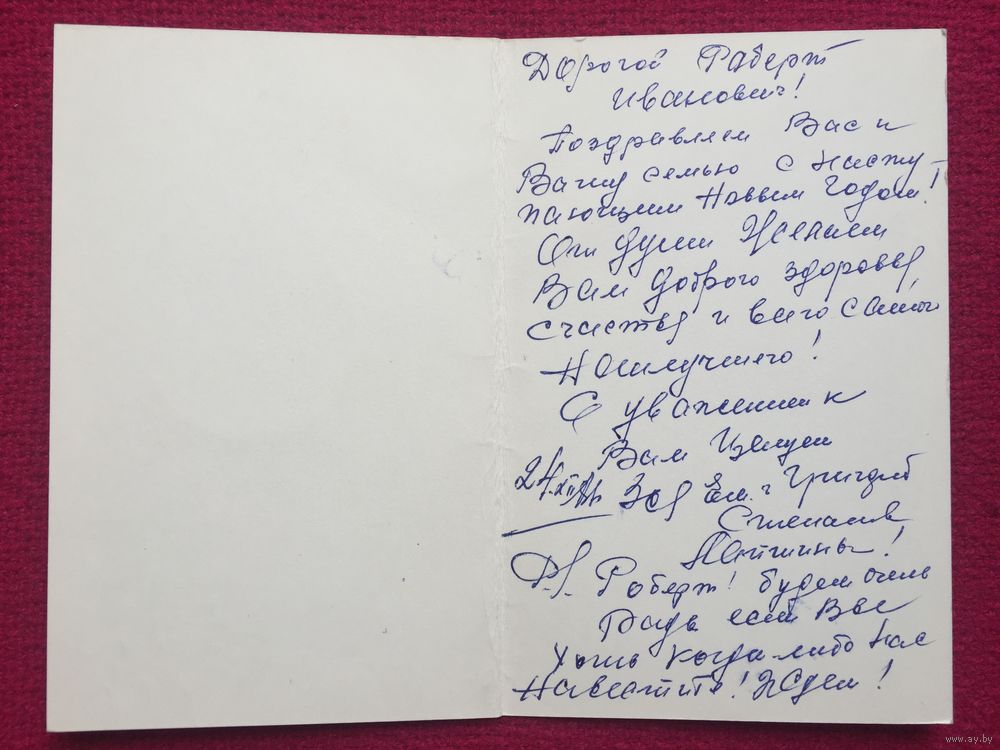 Дорогой Роберт
Иванович!
Поздравляем Вас и
Вашу семью с насту-
пающим Новым Годом!
От души Желаем
Вам доброго здоровья,
счастья и всего самого
Наилучшего!
С уважением к
Вам Целуем
24.XII Зоя Ем. и Григорий
Степанов
P.S. Роберт! будем очень
Рады если Вы
хоть когда-либо нас
Навестите! Ждем!
www.ay.by